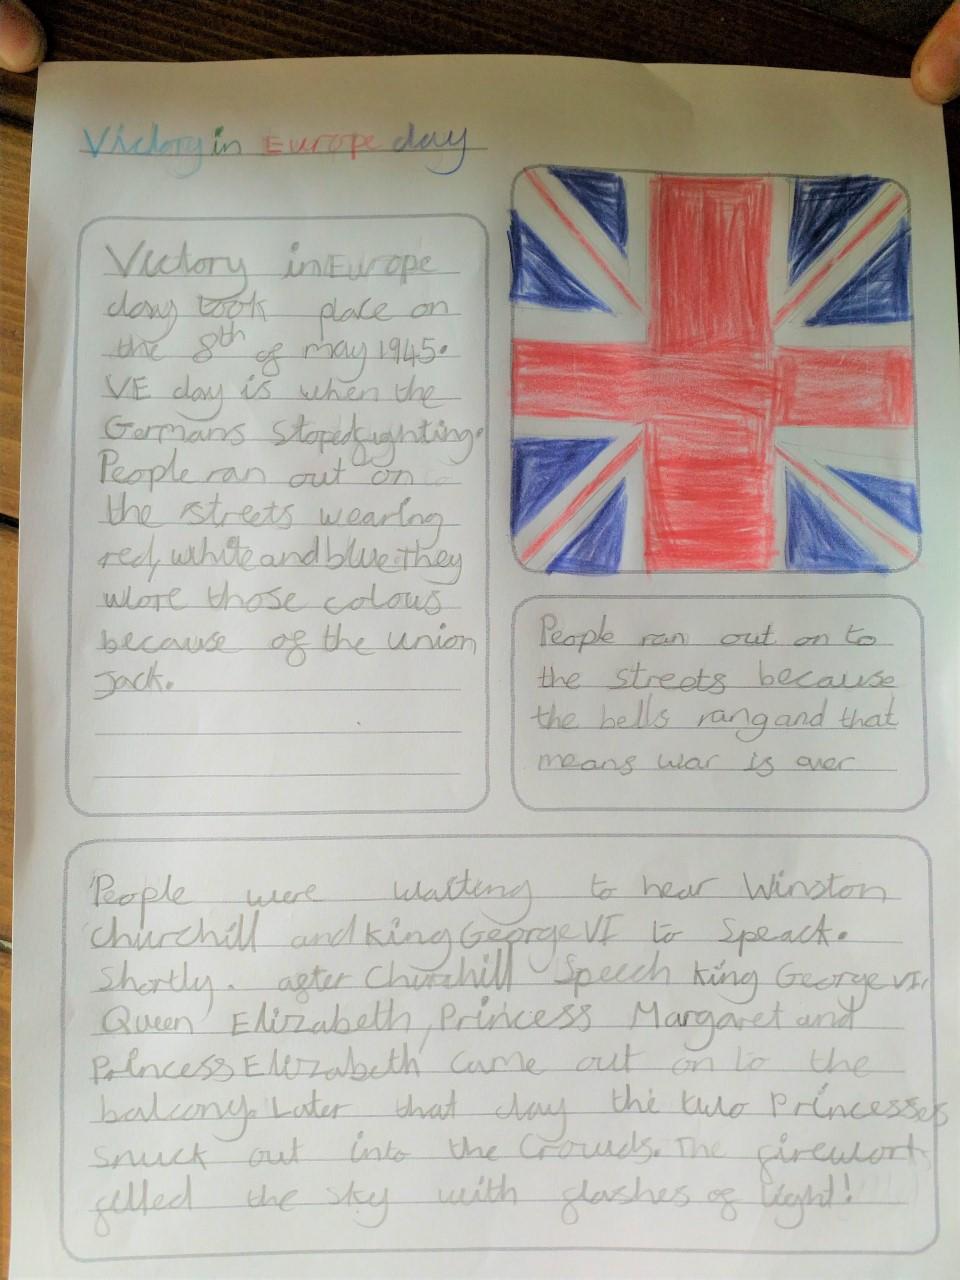 Victory in Europe day
Victory in Europe
day took place on
the 8th of may 1945.
VE day is when the
Germans stoped fighting.
People ran out on
the streets wearing
red, white and blue. They
wore those colous
because of the union
Jack.
People ran out on to
the streets because
the bells rang and that
means war is over
People were waiting to hear Winston
Churchill and King George VI to Speack.
Shortly. after Churchill Speech King George VI,
Queen Elizabeth, Princess Margaret and
Princess Elizabeth came out on to the
balcony. Later that day the two Princesses
snuck out into the Crowds. The firework
filled the sky with flashes of light!